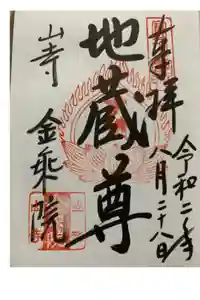 奉拝
令和二年
八月二十八日
地蔵尊
山寺
金乗院